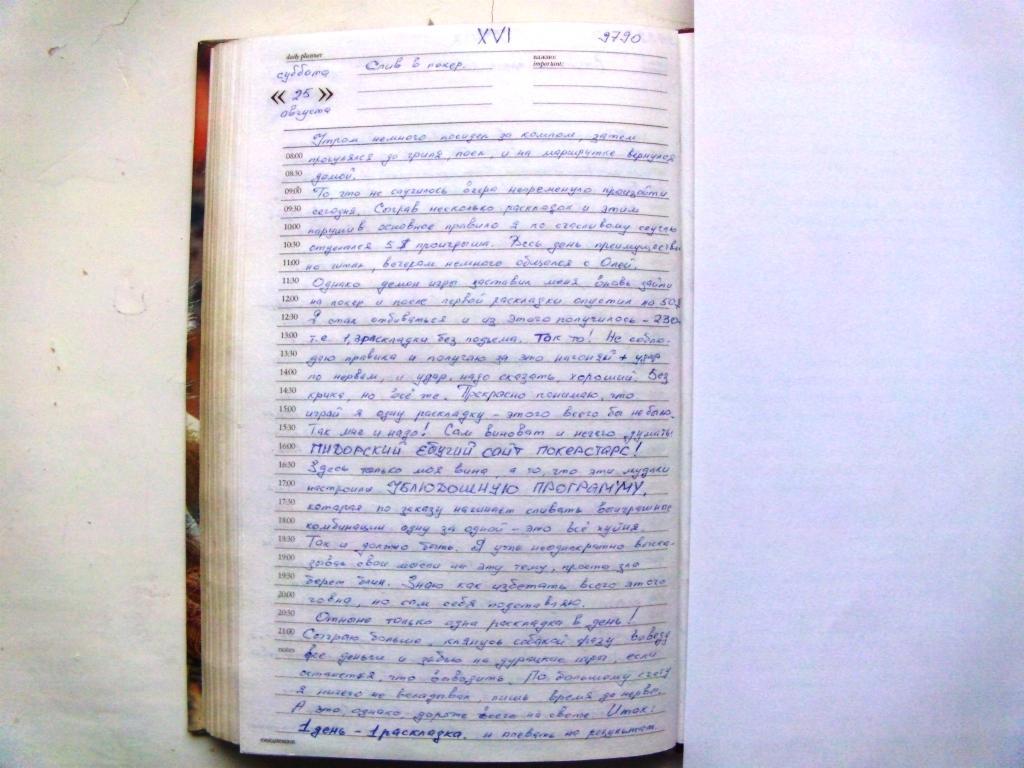 XVI 9790
daily planner
важно:
important:
суббота Слив в покер.
« 25 »
августа
Утром немного посидел за компом, затем
08:00 прогулялся до гриля, поел и на маршрутке вернулся
08:30 домой.
09:00 То, что не случилось вчера непременуло произойти
09:30 сегодня. Сыграв несколько раскладок и этим
10:00 нарушив основное правило я по счастливому случаю
10:30 5 $ проигрыша. Весь день преимуществен
11:00 на вечером немного общался с Олей.
11:30 Однако демон игры заставил меня вновь зайти
12:00 на покер и после первой раскладки опустил на 50$
12:30 Я стал отбиваться и из этого получилось - 230
13:00 т.е раскладки без подъема. Так то! Не соблю-
13:30 даю правила и получаю за это нагоняй + удар
14:00 по нервам, и удар, надо сказать, хороший. Без
14:30 крика, но всё же. Прекрасно понимаю, что
15:00 играй я одну раскладку - этого всего бы не было.
15:30 Так мне и надо! Сам виноват и нечего думать
16:00 ПИДОРСКИЙ ЕБУЧИЙ САЙТ ПОКЕРСТАРС!
16:30 Здесь только моя вина, а то, что эти мудаки
17:00 настроили УБЛЮДОШНУЮ ПРОГРАММУ,
17:30 которая по заказу начинает сливать выигрышные
18:00 комбинации одну за одной - это всё хуйня.
18:30 Так и должно быть. Я уже неоднократно выска-
19:00 зывал свои мысли на эту тему, просто зло
19:30 берет блин. Знаю как избегать всего этого
20:00 говна, но сам себя подставляю.
20:30 Отныне только одна раскладка в день!
21:00 Сыграю больше, клянусь собакой сразу выведу
notes все деньги и забью на дурацкие игры, если
останется, что выводить. По большому счету
я ничего не вкладывал, лишь время да нервы.
А это, однако, дороже всего на свете. Итак:
1 день - 1 раскладка, и плевать на результат.
ежедневник